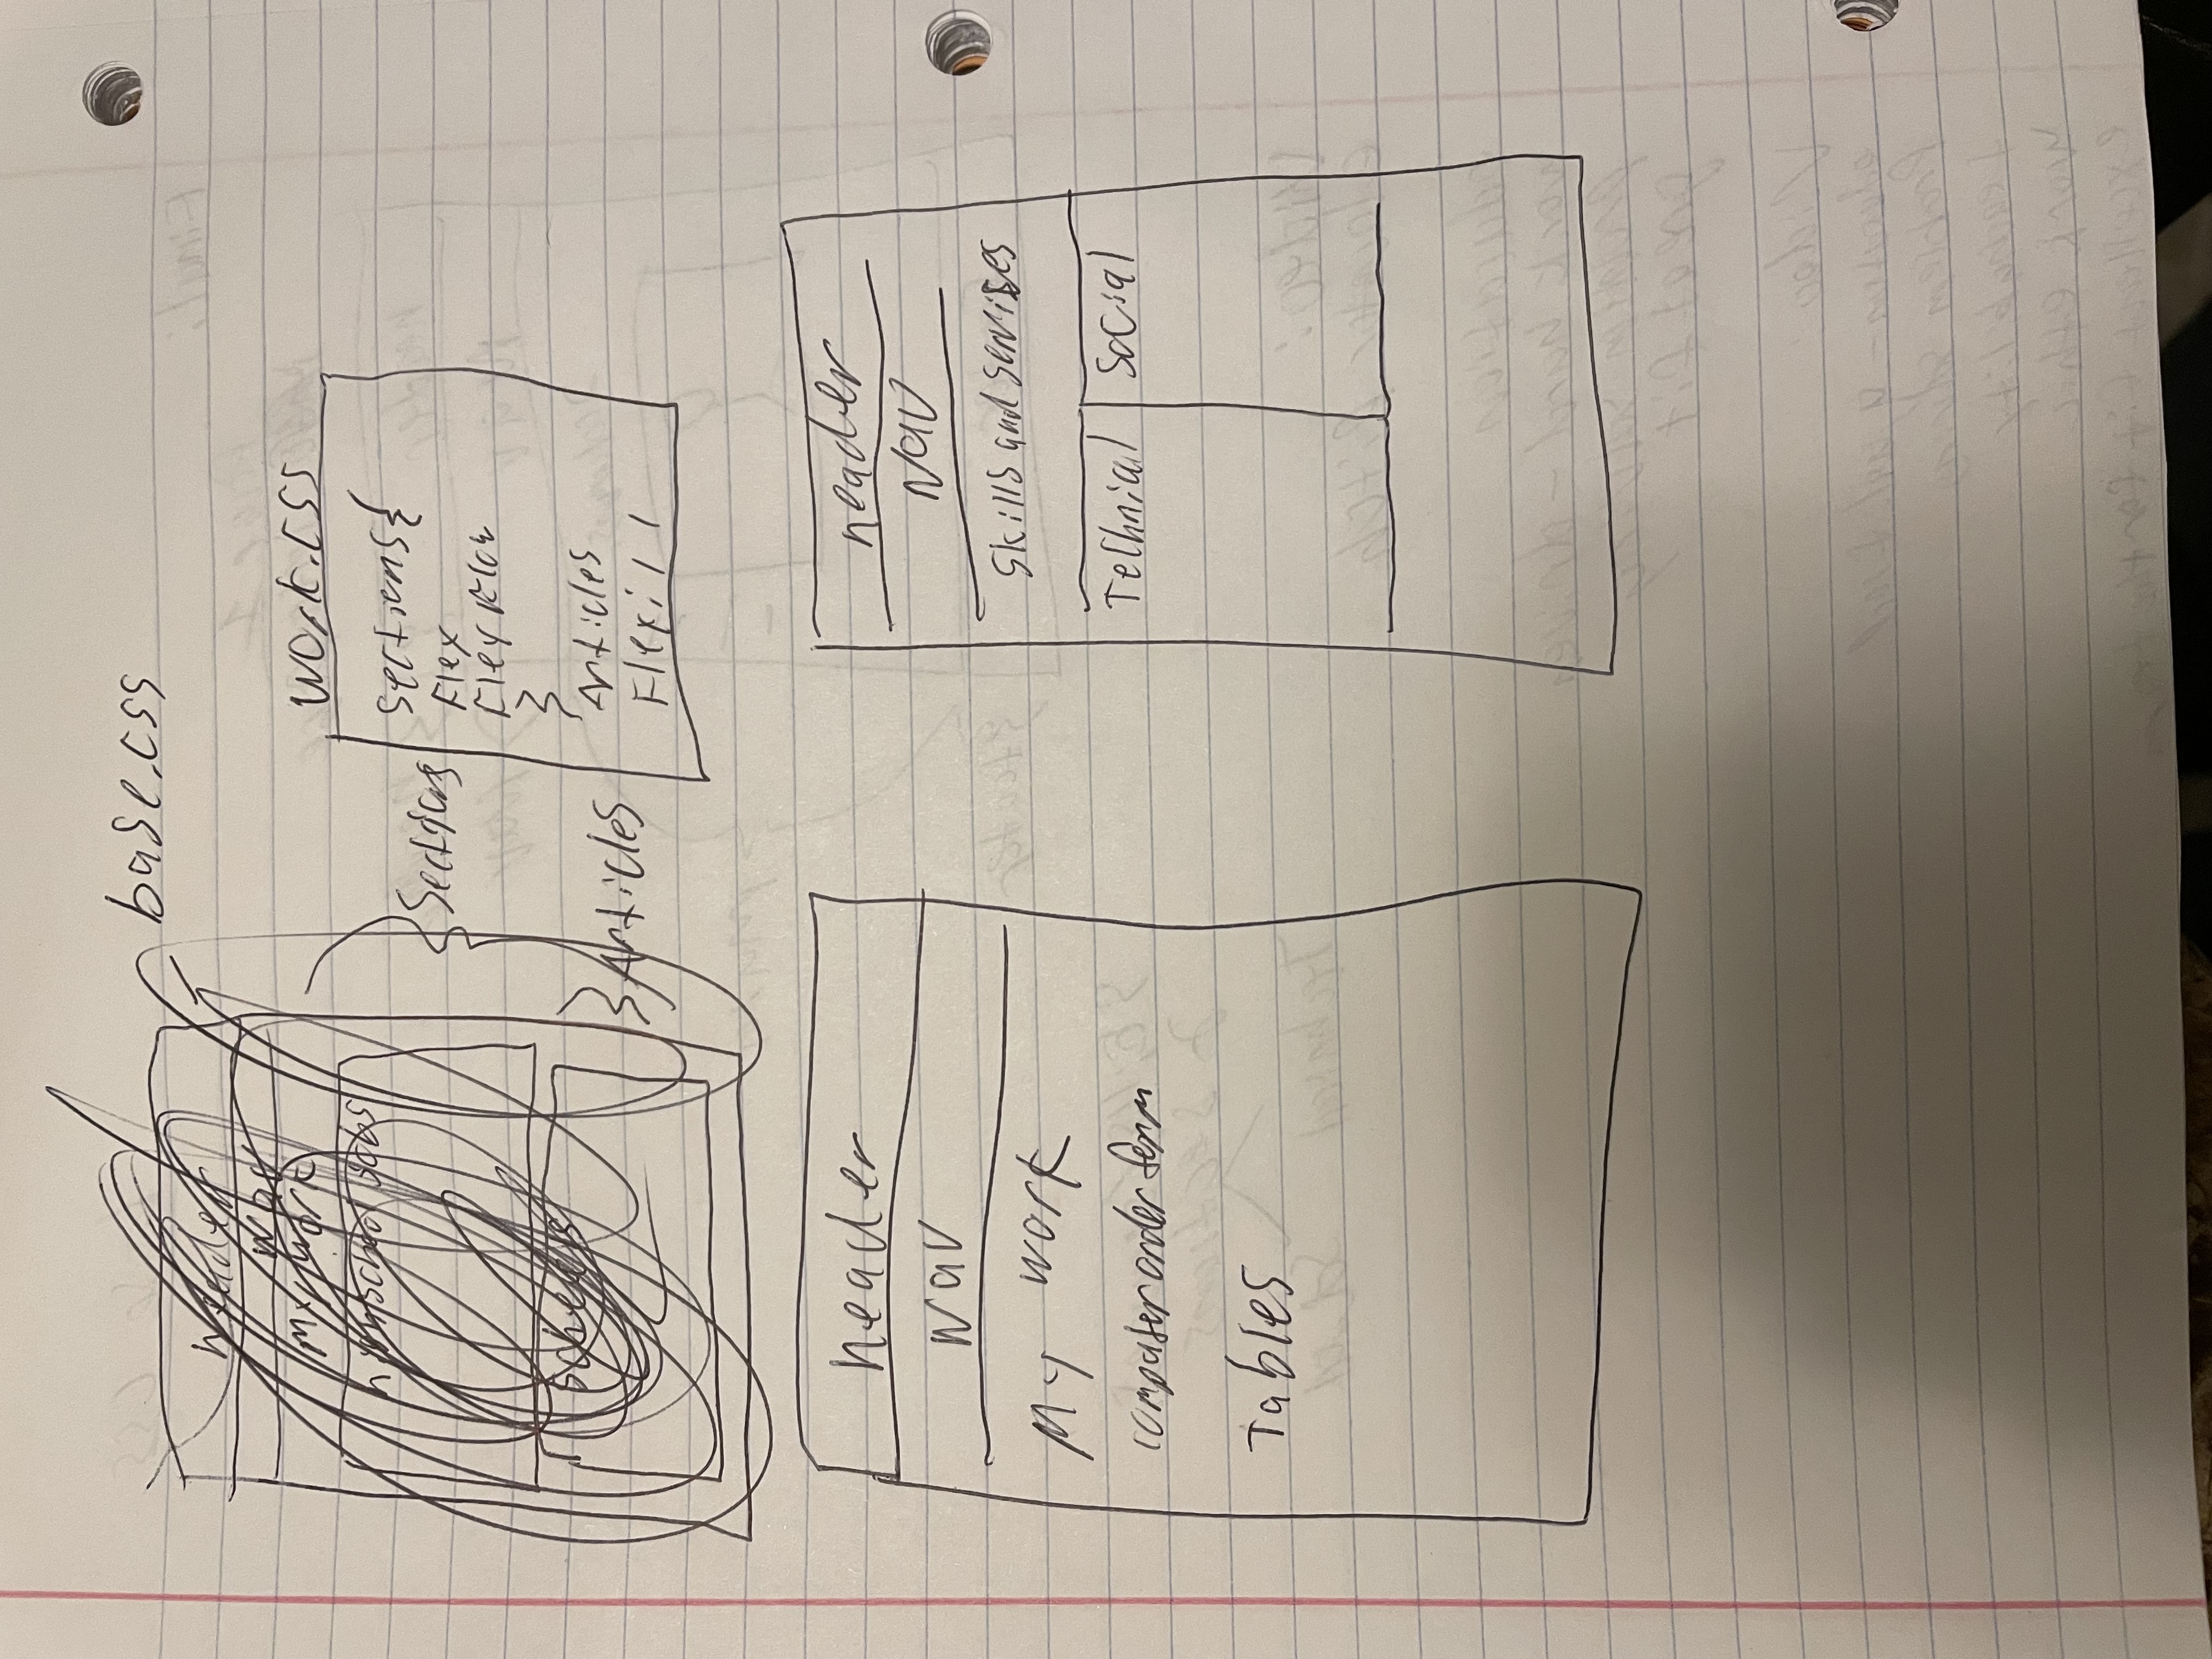 base.css
header
nav
My work
highschool jobs
Sections
Articles
work.css
Sections{
Flex
Flex Flow
}
Articles
Flex: 1 1
header
Nav
My work
computer order form
Tables
header
Nav
Skills and servises
Technical
Social